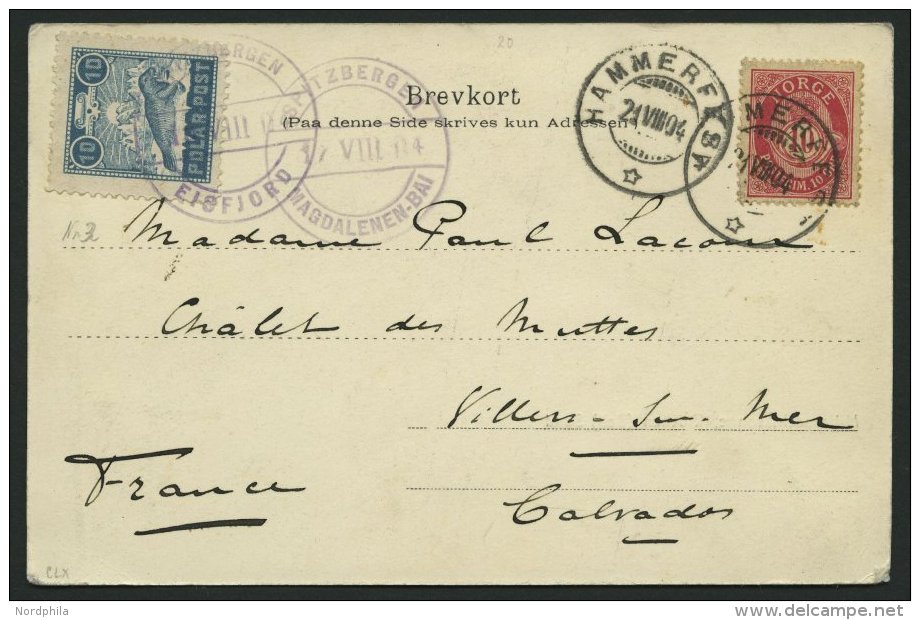 10
10
POLAR POST
EISFJORD
SPITZBERGEN
17 VIII 04
MAGDALENEN-BAI
20
Brevkort
(Paa denne Side skrives kun Adressen)
HAMMERFEST
21 VIII 04
NORGE
21 VIII 04
Nr. 2
Madame Paul Lacour
Châlet des Muttes
Villers-Sur-Mer
France
Calvados
CLX
Nordphila
delcampe.net